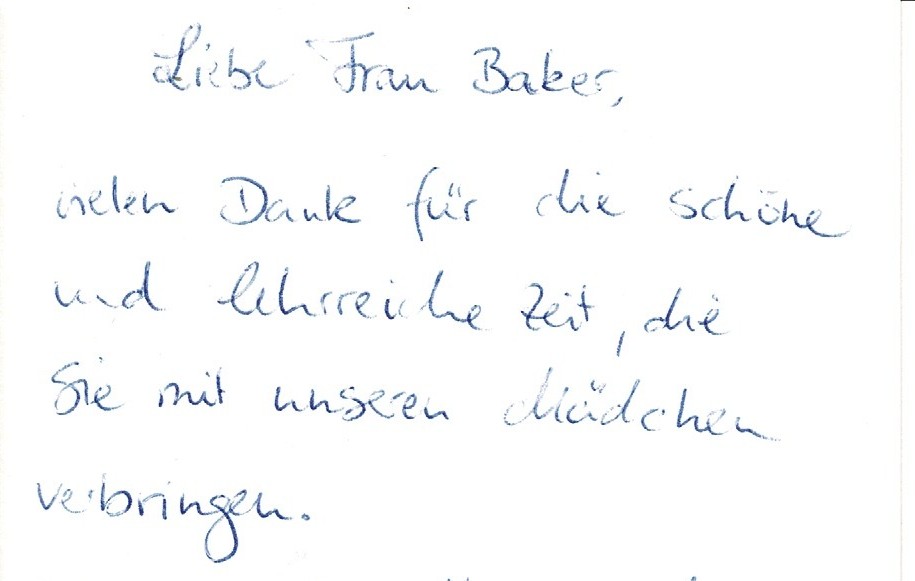 Liebe Frau Baker,
vielen Dank für die schöne
und lehrreiche Zeit, die
Sie mit unseren Mädchen
verbringen.